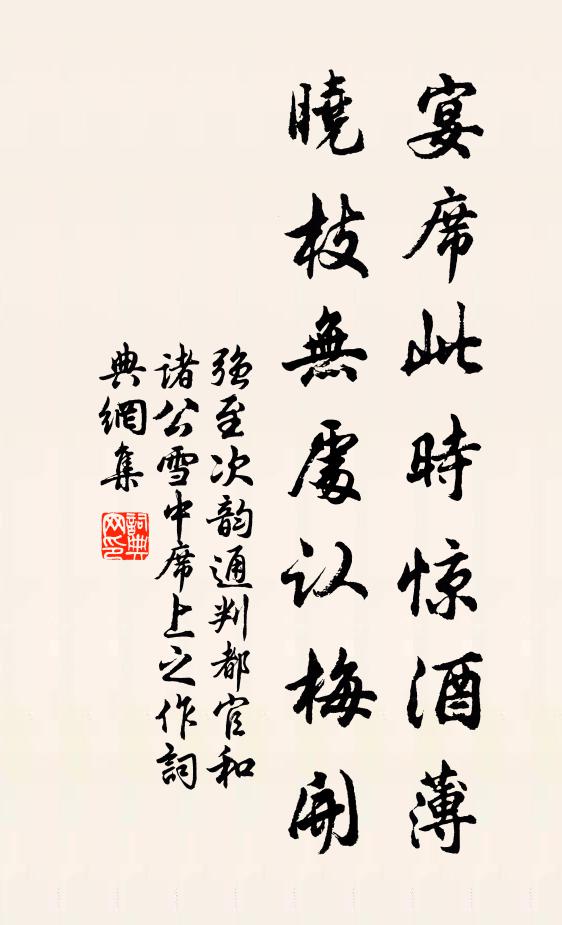 宴席此時惊酒薄
曉枝無處认梅開
强至次韵通判都官和
諸公雪中席上之作詞
典網集
詞典网印